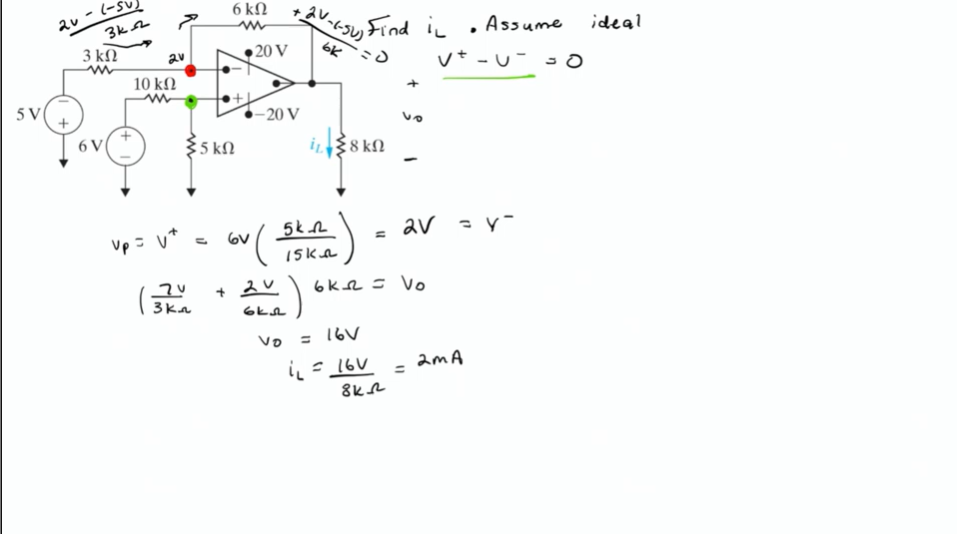 2V - (-5V) / 3kΩ
6 kΩ
+ 2V-(-5V) / 6k = 0
Find iL . Assume ideal
V+ - V- = 0
3 kΩ
2V
20 V
10 kΩ
-
+
−20 V
5 V
-
+
6 V
+
-
5 kΩ
iL
8 kΩ
+
vo
-
Vp = V+ = 6V ( 5kΩ / 15kΩ ) = 2V = V-
( 7V / 3kΩ + 2V / 6kΩ ) 6kΩ = Vo
Vo = 16V
iL = 16V / 8kΩ = 2mA